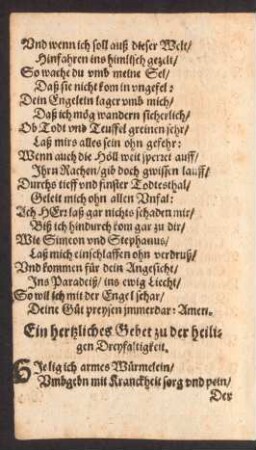 Vnd wenn ich soll auß dieser Welt/
Hinfahren ins himlisch gezelt/
So wache du vmb meine Sel/
Daß sie nicht kom in vngefel:
Dein Engelein lager vmb mich/
Daß ich mög wandern sicherlich/
Ob Todt vnd Teuffel greinen sehr/
Laß mirs alles sein ohn gefehr:
Wenn auch die Höll weit sperret auff/
Ihrn Rachen/ gib doch gwissen lauff/
Durchs tieff vnd finster Todtesthal/
Geleit mich ohn allen Vnfal:
Ach HErr laß gar nichts schaden mir/
Biß ich hindurch kom gar zu dir/
Wie Simeon vnd Stephanus/
Laß mich einschlaffen ohn verdruß/
Vnd kommen für dein Angesicht/
Ins Paradeiß/ ins ewig Liecht/
So wil ich mit der Engel schar/
Deine Güt preysen jmmerdar: Amen.
Ein hertzliches Gebet zu der heili-
gen Dreyfaltigkeit.
HIe lig ich armes Würmelein/
Vmbgebn mit Kranckheit sorg vnd pein/
Der